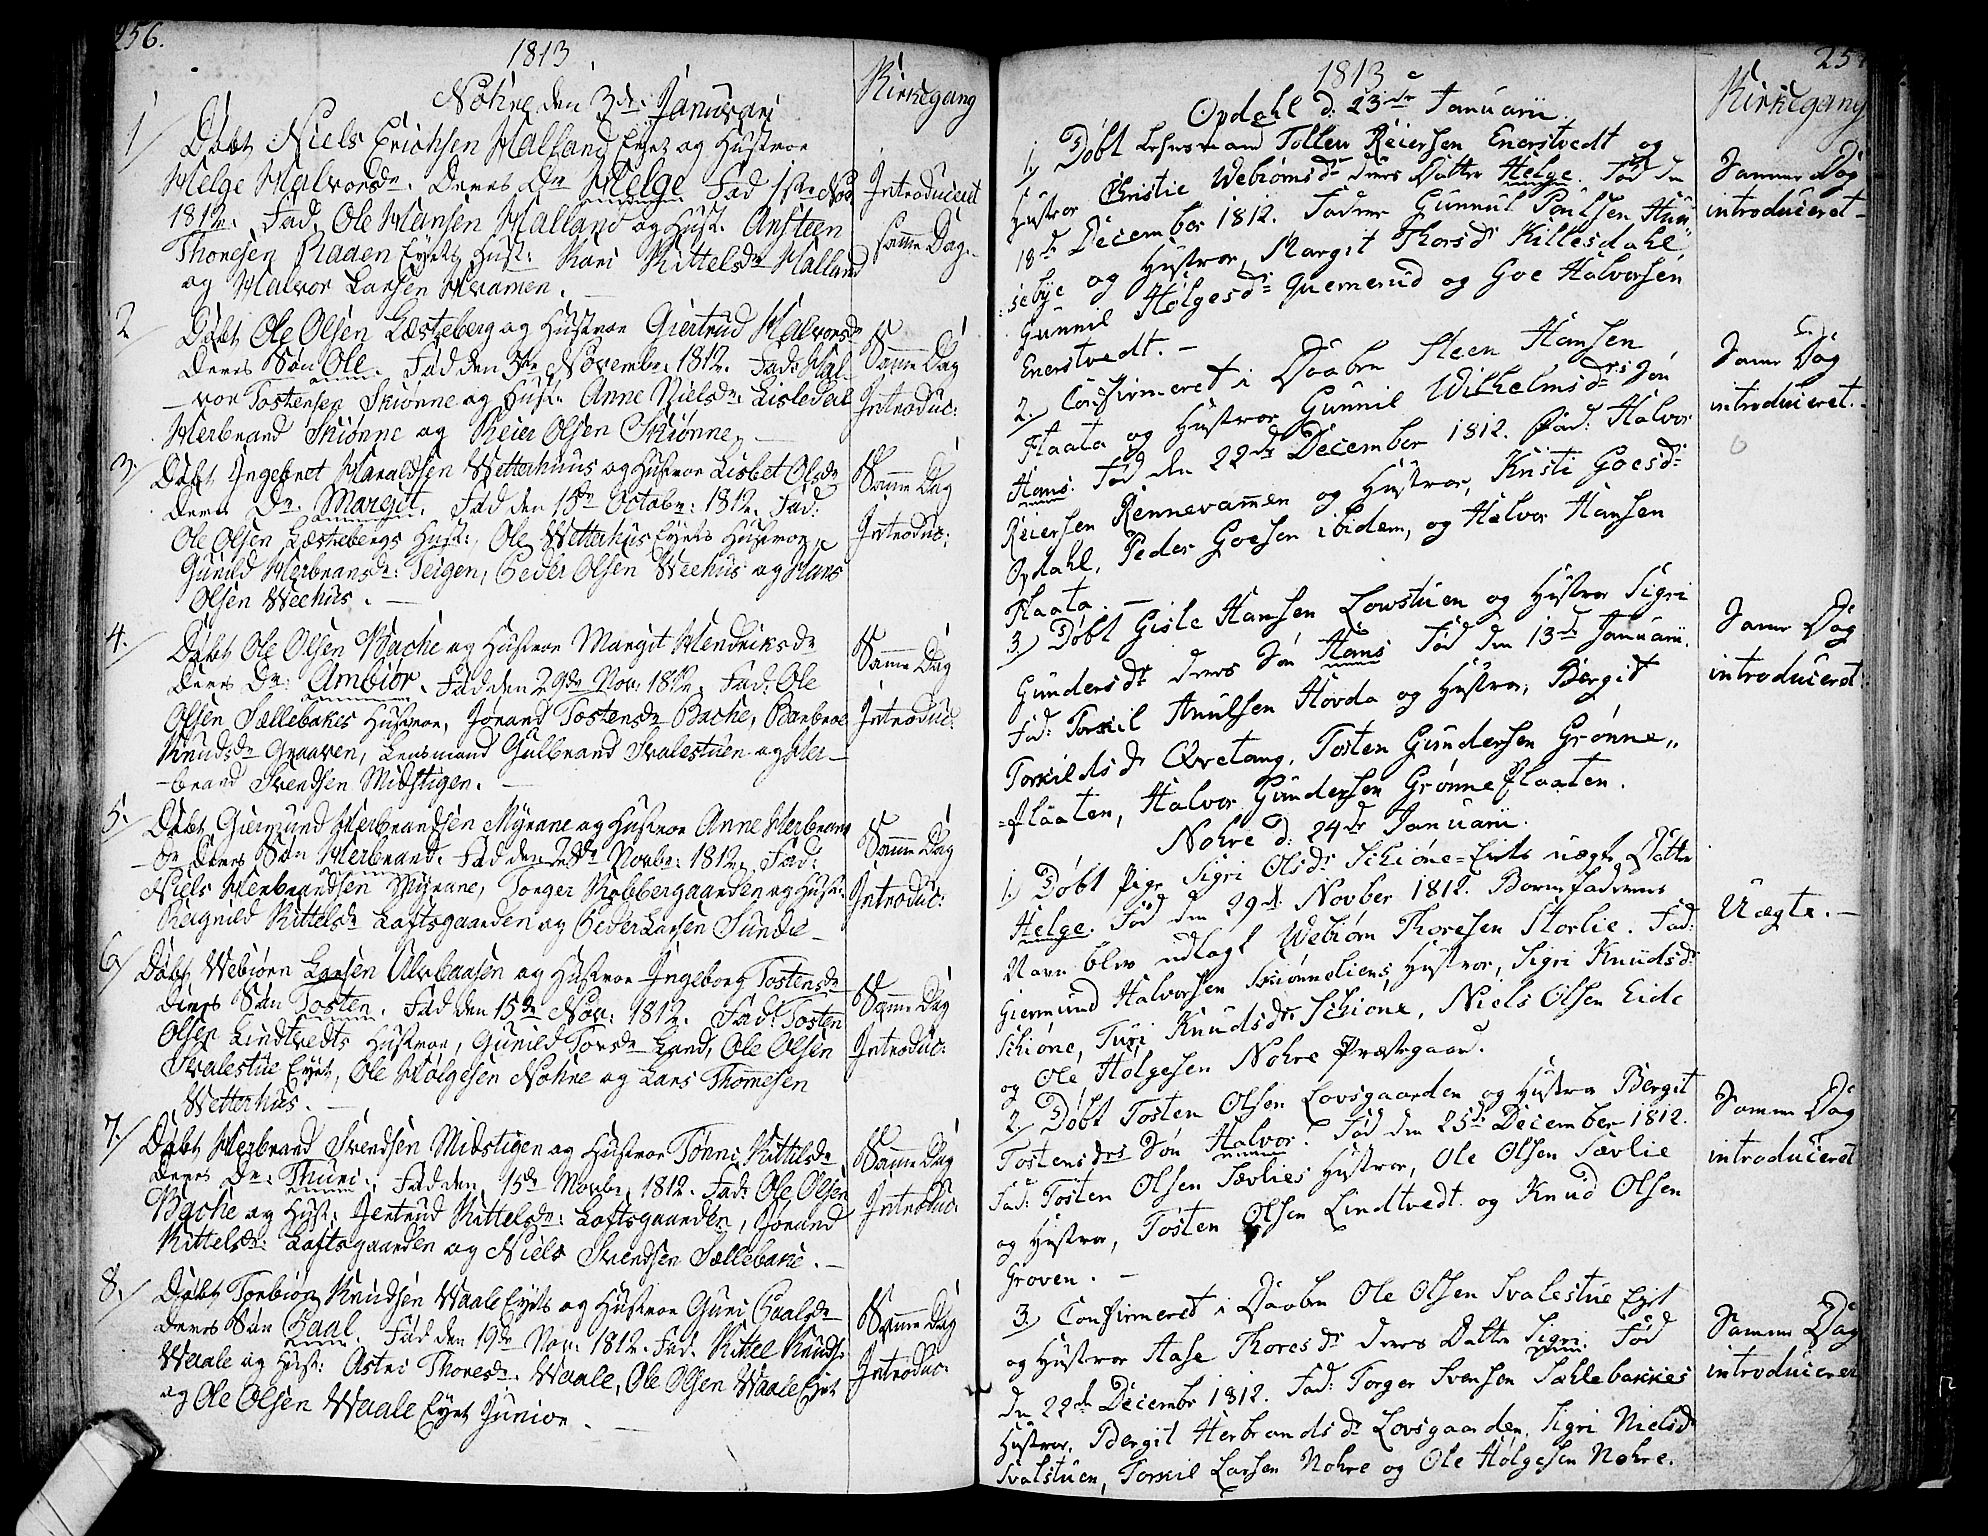 256.
1813
Kirkegang
Nohre den 3de Januari
1/ Døbt Niels Erichsen Halland Eyet og Hustroe
Helge Halvorsdr. Deres Dr Helge Fød 1ste Nov
1812. Fad. Ole Hansen Halland og Hust. Ansteen
Thoresen Raaen Eyets Hust: Kari Kittelsdr Halland
og Halvor Larsen Hvamen.
Introduceret
samme Dag.
2/ Døbt Ole Olsen Læsteberg og Hustroe Giertrud Halvorsdr
Deres Søn Ole. Fød den 3de Novembr: 1812. Fad: Hal-
vor Tostensen Skiønne og Hust: Anne Nielsdr. Lisledeil
Herbrand Skiønne og Reier Olsen Skiønne. —
Samme Dag
Introduc:
3. Døbt Ingebret Haraldsen Wetterhuus og Hustroe Lisbet Olsdr
deres Dr. Margit. Fød den 15de Octobr: 1812. Fad:
Ole Olsen Læstebergs Hust:, Ole Wetterhus Eyets Hustroe,
Gunild Herbransdr: Teigen, Peder Olsen Weehus og Hans
Olsen Weehus. —
Samme Dag
Introduc:
4. Døbt Ole Olsen Bache og Hustroe Margit Hendriksdr
deres Dr: Ambiør. Fød den 29de Nov: 1812. Fad: Ole
Olsen Sællebakes Hustroe, Jørand Tostensdr Bache, Barbroe
Knudsdr Graaven, Lensmand Gulbrand Svalestuen og Her-
brand Svendsen Midstigen. —
Samme Dag
Introduc:
5. Døbt Giermund Herbrandsen Myrane og Hustroe Anne Herbrans
Dr deres Søn Herbrand. Fød den Novbr: 1812. Fad:
Niels Herbrandsen Myrane, Torger Kobbergaarden og Hust:
Ragnild Kittelsdr Loftsgaarden og Peder Larsen Sunde —
Samme Dag
Introduc:
6/ Døbt Webiørn Larsen Alvbaasen og Hustroe Ingeborg Tostensdr
deres Søn Tosten. Fød den 15de Nov: 1812. Fad: Tosten
Olsen Lindtvedts Hustroe, Gunild Torsdr Land, Ole Olsen
Svalestue Eyet, Ole Holgesen Nohre og Lars Thomesen
Wetterhus. —
Samme Dag
Introduc:
7. Døbt Herbrand Svendsen Midstigen og Hustroe Tønne Kittelsdr
deres Dr: Thuri. Fød den 15de Novbr 1812. Fad: Ole Olsen
Bache og Hust: Jertrud Kittelsdr: Loftsgaarden, Jørand
Kittelsdr: Loftsgaarden og Niels Svendsen Sællebake. —
Samme Dag
Introduc:
8. Døbt Torbiørn Knudsen Waale Eyets og Hustroe Guri Paalsdr
deres Søn Paal. Fød den 19de Nov: 1812. Fad. Kittel Knuds:
Waale og Hust: Astri Thoresdr. Waale, Ole Olsen Waale Eyet
og Ole Olsen Waale Eyet Junior. —
Samme Dag
Introduc:
1813
Kirkegang
Opdahl d: 23de Januarii.
1, Døbt Lehnsmand Tollev Reiersen Enerstvedt og
Hustroe Christie Webiørnsdr deres Datter Helge. Fød den
18de December 1812. Faddere Gunnul Poulsen Huu-
sebye og Hustroe, Margit Thorsdr Killesdahl,
Gunnil Holgesdr Quemerud og Goe Halvorsen
Enerstvedt. —
Samme Dag
introduceret —
2. Confirmeret i Daaben Steen Hansen
Flaata og Hustroe Gunnil Wilhelmsdrs Søn
Hans. Fød den 22de December 1812. Fad: Halvor
Reiersen Rennevammen og Hustroe, Kristi Goesdr
Opdahl, Peder Goesen ibidem, og Halvor Hansen
Flaata. —
Samme Dag
introduceret.
3, Døbt Gisle Hansen Lowstuen og Hustroe Sigri
Gundersdr deres Søn Hans Fød den 13de Januarii.
Fad: Torkil Anulsen Hovda og Hustroe, Bergit
Torkildsdr Qvetang, Tosten Gundersen Grønne„
=flaaten, Halvor Gundersen Grønneflaaten.
Samme Dag
introduceret
Nohre d: 24de Januarii.
1, Døbt Pige Sigri Olsdr Schiøne=Eiets uægte Datter
Helge. Fød den 29de Novber 1812. Barnefaderens
Navn blev udlagt Webiørn Thoresen Storlie. Fad:
Giermund Halvorsen Skiønneliens Hustroe, Sigri Knudsdr
Schiøne, Turi Knudsdr Schiøne, Niels Olsen Eide
og Ole Holgesen Nohre Præstegaard.
Uægte. —
2, Døbt Tosten Olsen Lovsgaarden og Hustroe Bergit
Tostensdrs Søn Halvor. Fød den 25de December 1812.
Fad: Tosten Olsen Sævlies Hustroe, Ole Olsen Sævlie
og Hustroe, Tosten Olsen Lindtvedt og Knud Olsen
Groven. —
Samme Dag
introduceret
3. Confirmeret i Daaben Ole Olsen Svalestue Eyet
og Hustroe Aase Thoresdr deres Datter Sigri. Fød
den 22de Decembr 1812. Fad: Torger Svensen Sæhlebakkes
Hustroe, Bergit Herbrandsdr Lovsgaarden, Sigri Nielsdr
Svalstuen, Torkil Larsen Nohre og Ole Holgesen Nohre.
Samme Dag
introduceret